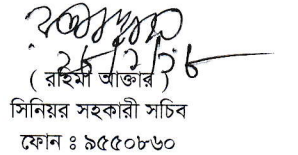 ( রহিমা আক্তার )
সিনিয়র সহকারী সচিব
ফোন ঃ ৯৫৫০৮৬০